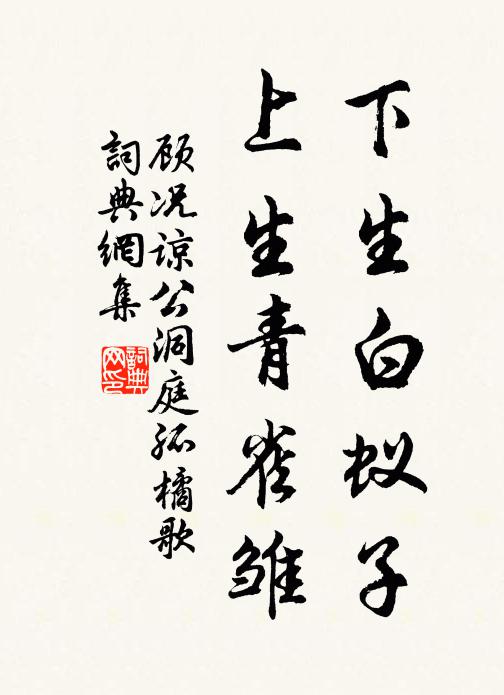 下生白蚁子
上生青雀雏
顾况谅公洞庭孤橘歌
詞典網集
詞典
网印